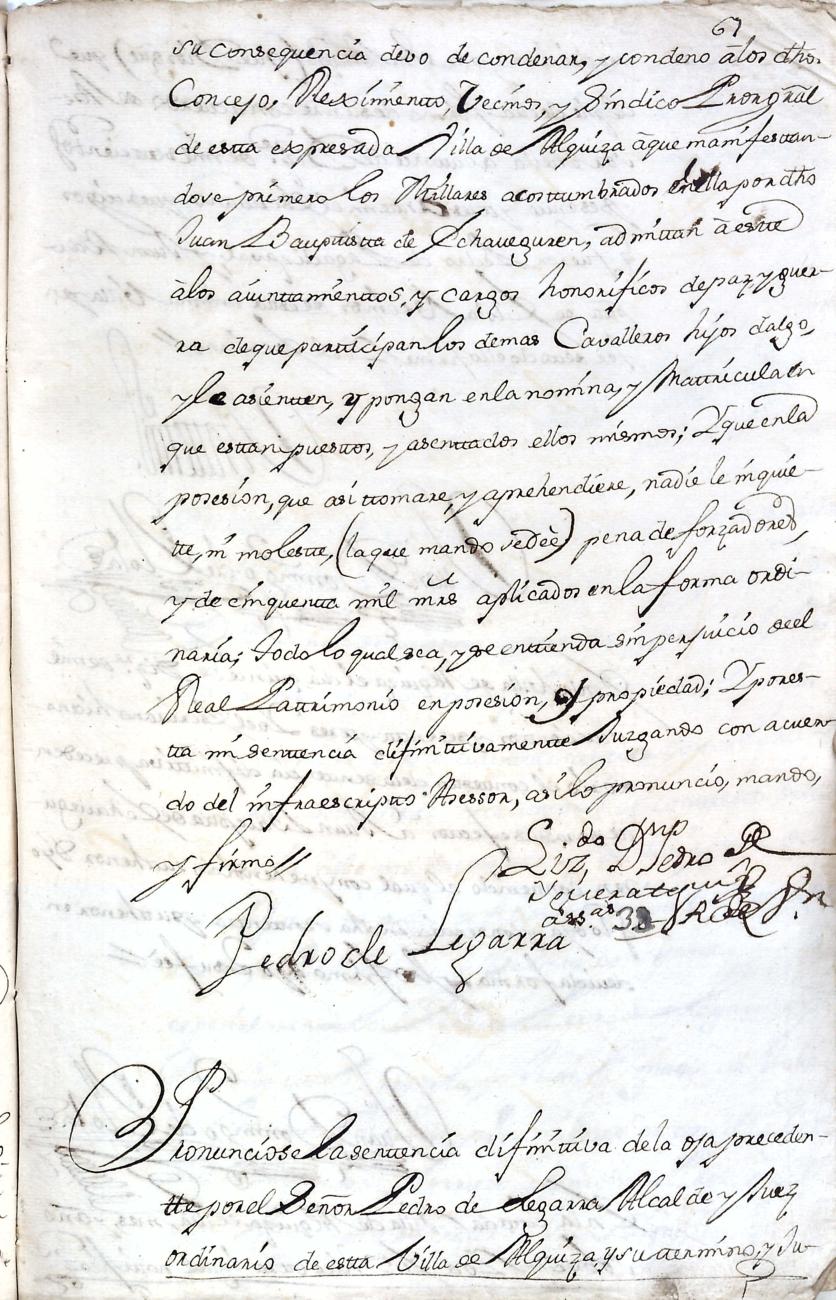 67
su consequencia devo de condenar, y condeno â los dhos.
Concejo, Reximientto, Vecinos, y Síndico Prorgral
de estta expresada Villa de Alquiza â que manifesttan-
dose primero los Millares acosttumbrados en ella por dho
Juan Bauptistta de Echaveguren, admittan â estte
â los aiunttamienttos, y cargos honoríficos de paz, y guer-
ra de que partticipan los demas Cavalleros hijos dalgo,
y le asientten, y pongan en la nomina, y Mattrícula en
que esttan puesttos, y asenttados ellos mismos; Y que en la
posesion, que asi ttomare, y aprehendiere, nadie le inquie-
tte, ni molestte, (la que mando se dè) pena de forzadores,
y de cinquentta mil mrs aplicados en la forma ordi-
naria; ttodo lo qual sea, y se enttienda sin perjuicio de el
Real Pattrimonio en posesion, y propiedad; Y por es-
tta mi senttencia difinittivamentte Juzgando con acuer-
do del infraescriptto Assesor, asi lo pronuncio, mando,
y firmo//
Lizdo Dn Pedro
Pedro de Legarra
Pronunciose la senttencia difinittiva de la oja preceden-
tte por el Señor Pedro de Legarra Alcalde y Juez
ordinario de estta Villa de Alquiza, y su termino, y Ju-